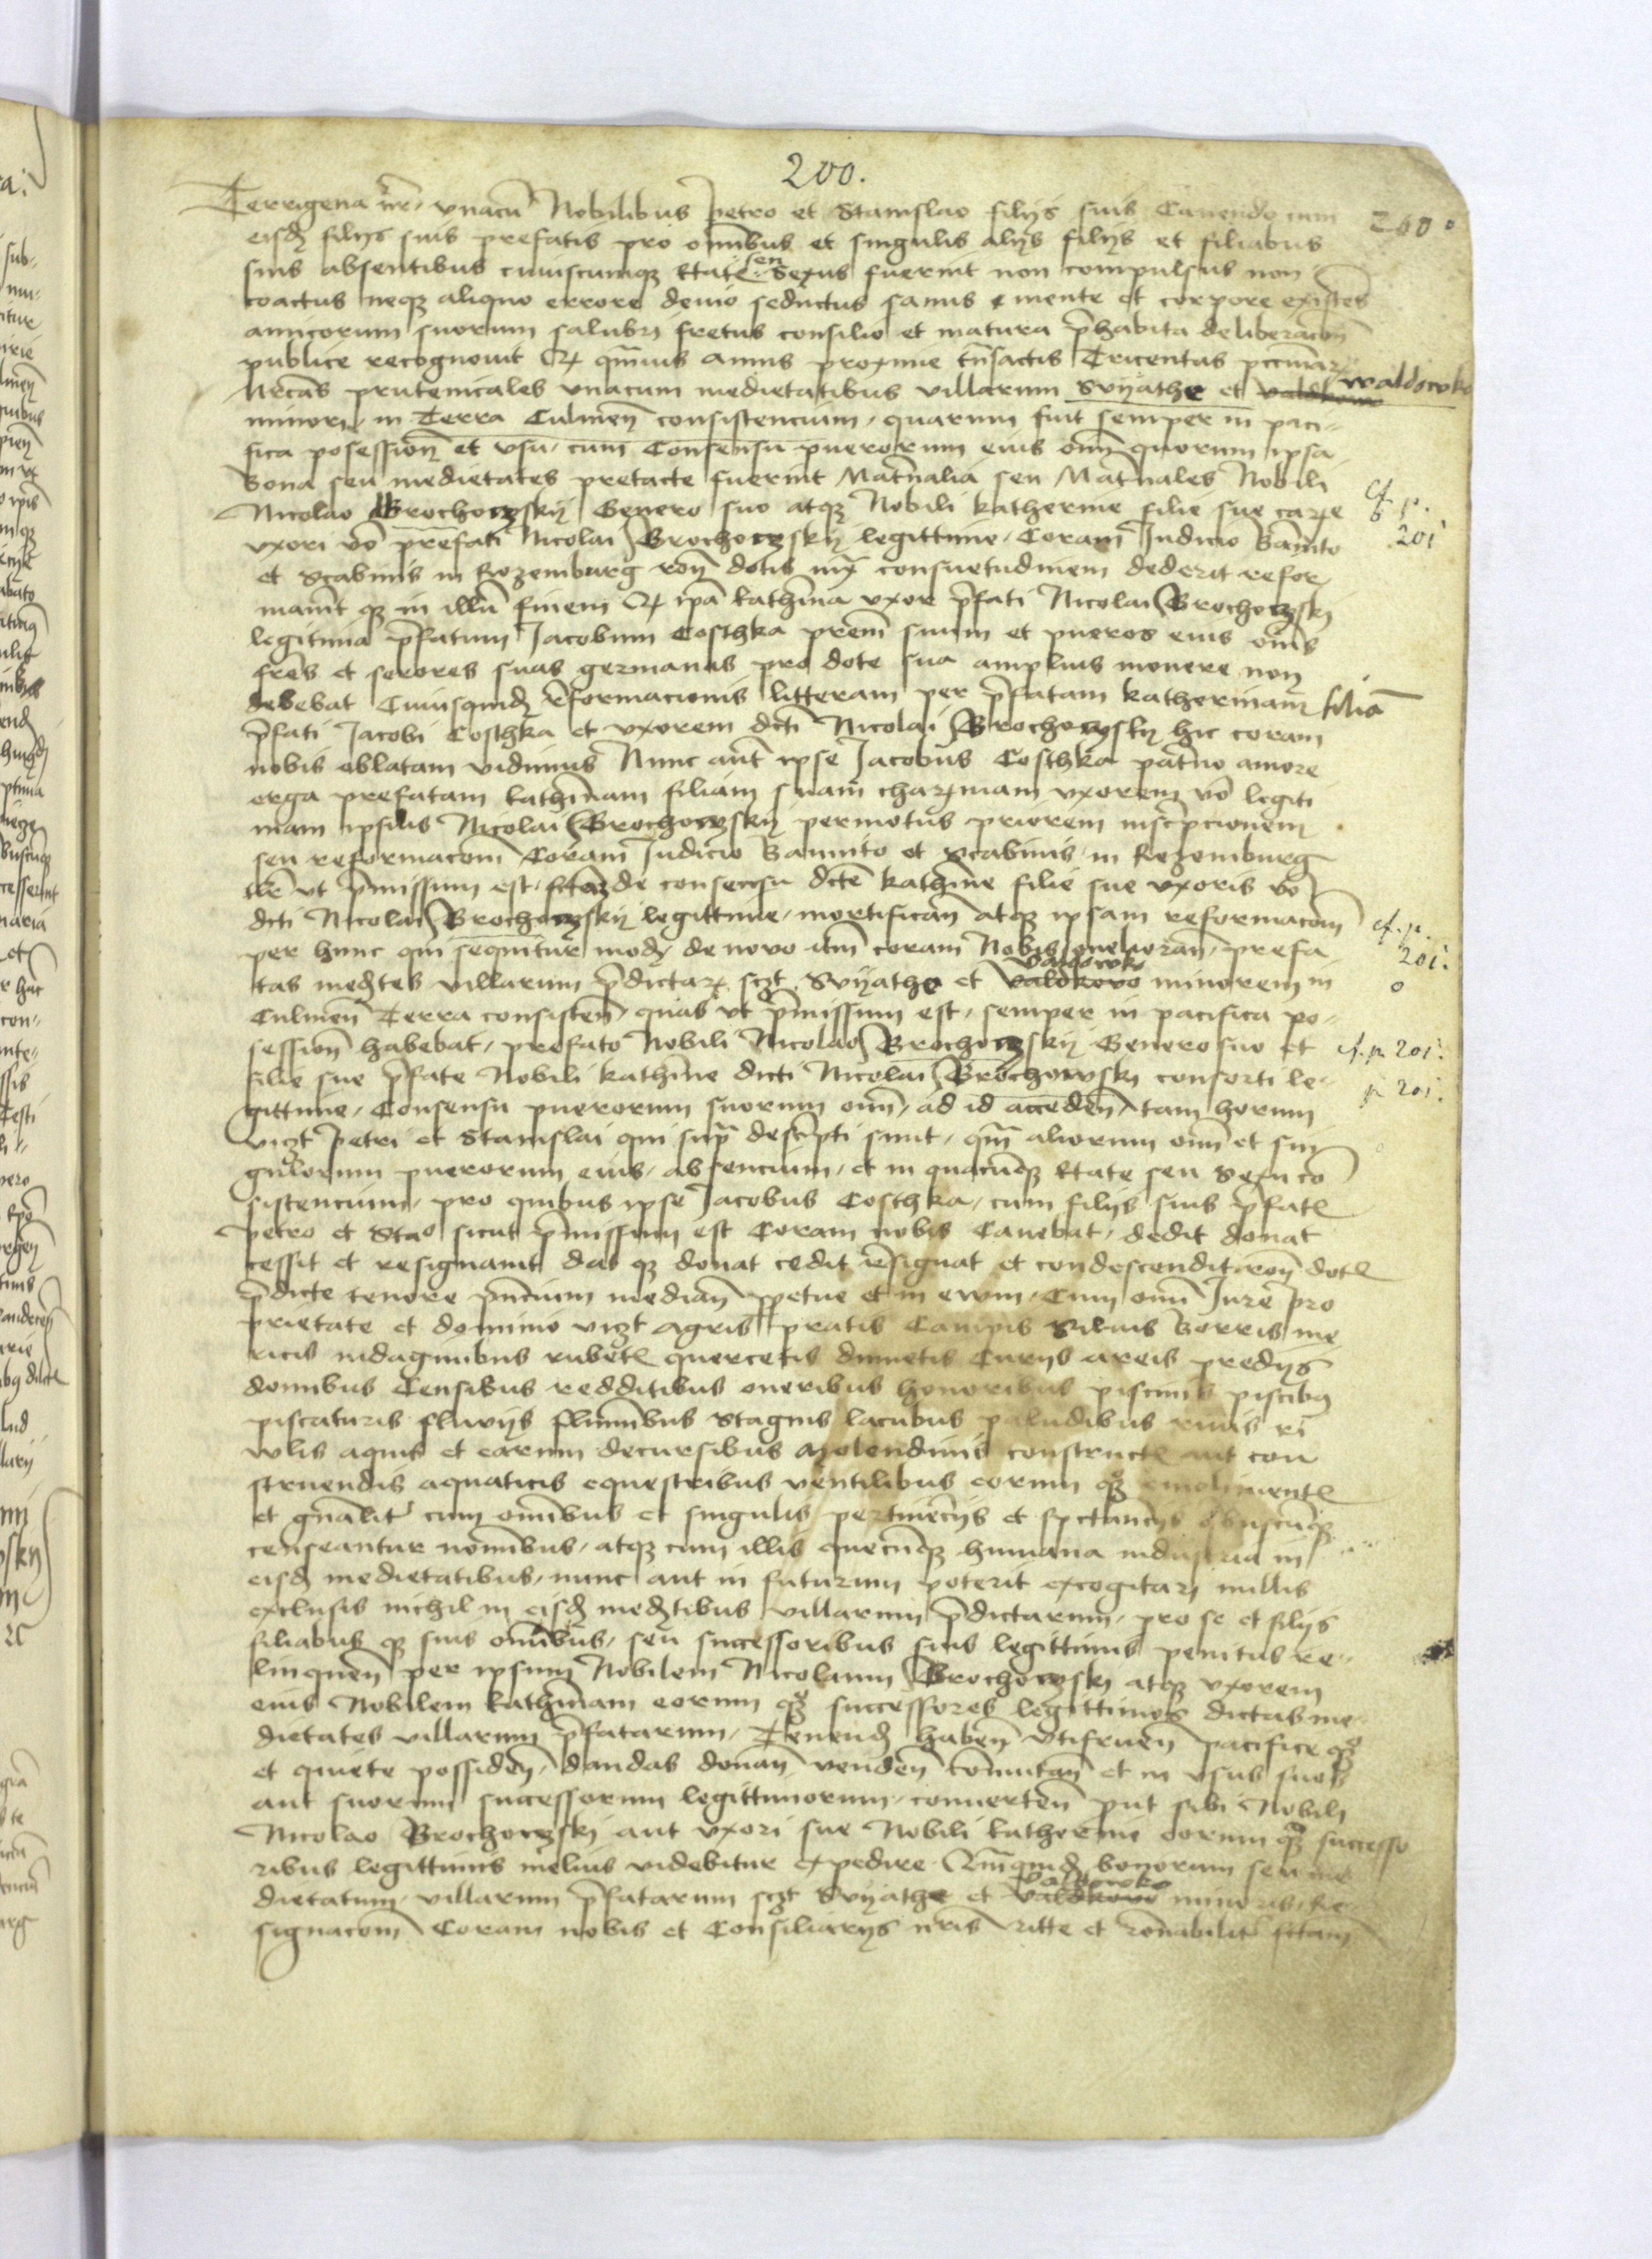 200.
Terrigena nr̄ vnacū Nobilibus Petro et Stanislao filijs suis Cauendo cum 200
eisdē filijs suis prefatis pro omībus et singulis alijs filijs et filiabus
suis absentibus cuiuscumqꝫ Etatꝭ seu Sexus fuerint non compulsus non
coactus neqꝫ aliquo errore deuio seductus sanus mente et corpore existēs
amicorum suorum salubri fretus consilio et matura p̄habita deliberacōn̄
publice recognouit Qꝛ qm̄uis annis proxime tn̄sactis Tricentas pccuniaꝝ
Mrcās prutenicales vnacum medietatibus villarum Svyathe et Valdkowo Waldowko
minori, in Terra Culmen̄ consistencium, quarum fuit semper in paci-
fica posession̄ et vsu, cum Consensu puerorum eius om̄ quorum ipsa
Bona seu medietates pretacte fuerint Mat̄nalia seu Mat̄nales Nobili
Nicolao Brochowskij Genero suo atqꝫ Nobili Katherine filie sue care cf. p. 201
vxori vō prefati Nicolai Brochowskij legittime, Coram Iudicio Bannito
et Scabinis in Rozemburg rōn̄ dotis iux̄ consuetudinem dederit refor
mauit qꝫ in illū finem Qꝛ ipā Kathīna vxor p̄fati Nicolai Brochowskj
legitima p̄fatum Jacobum Costhka prēm suum et pueros eius om̄s
frēs et sorores suas germanas pro dote sua amplius monere non
debebat Cuiusquidē r̄formacionis litteram per p̄fatam Katherinam filiā
p̄fati Jacobi Costhka et vxorem dcti Nicolai Brochowskij hic coram
nobis oblatam vidimus Nunc aut̄ ipse Jacobus Costhka pat̄no amore
erga prefatam Kathīnam filiam suam charꝫmam vxorem vō legiti
mam ipsius Nicolai Brochowskij permotus priorem inscrp̄cionem
seu reformacōm Coram Iudicio Bannito et Scabinis in Rozemburg
vt p̄missum est, fctaꝫ de consensu dctē Kathīne filie sue vxoris vō
dcti Nicolai Brochowskij legittime, mortifican̄ atqꝫ ipsam reformacōm cf. p. 201.
per hunc qui sequitur modꝫ de novo itm̄ coram Nobis melioran̄, prefa
tas medꝫtes villarum p̄dictaꝝ scꝫt Svyathe et Valdkowo Valdowko minorem in
Culmen̄ Terra consisten̄, quas vt p̄missum est, semper in pacifica po-
session̄ habebat, prefato Nobili Nicolao Brochowskij Genero suo et cf. p. 201.
filie sue p̄fate Nobili Kathīne dicti Nicolai Brochowskj consorti le- p. 201.
gittime, Consensu puerorum suorum om̄, ad id acceden̄, tam horum
viꝫt Petri et Stanislai qui sup̄ descr̄pti sunt, qm̄ aliorum om̄ et sin
gulorum puerorum eius, absencium, et in quacūqꝫ Etate seu Sexu cō
sistencium, pro quibus ipse Jacobus Costhka, cum filijs suis p̄fatꝭ
Petro et Stao sicut p̄missum est Coram nobis Canebat, dedit donat
cessit et resignauit dat qꝫ donat cedit r̄signat et condescendit rōn̄ dotꝭ
p̄dicte tenore pn̄cium median̄ ꝑpetue et in ewm, Cum om̄ Jure pro
prietate et dominio viꝫt agris pratis Campis Siluis Borris me
ricis indaginibus rubetꝭ quercetis dumetis Curijs areis predijs
domibus Censibus redditibus oneribus honoribus piscinis piscibꝫ
piscaturis fluvijs fluminibus Stagnis lacubus paludibus riuis ri
wlis aquis et earum decursibus Molendinis constructꝭ aut con
struendis aquaticis equestribus ventilibus eorum qꝫ emolimentꝭ
et gn̄alit̄ cum omībus et singulis pertinēcijs et spctancijs Qbuscūqꝫ
censeantur nomībus, atqꝫ cum illis quecūqꝫ humana industria in
eisdꝫ medietatibus, nunc aut in futurum poterit excogitarj nullis
exclusis nichil in eisdꝫ medꝫtibus villarum p̄dictarum, pro se et filijs
filiabus qꝫ suis omībus, seu successoribus suis legittimis penitus re-
linquen̄ per ipsum Nobilem Nicolaum Brochowskj atqꝫ vxorem
eius Nobilem Kathīnam eorum qꝫ successores legittimos dictas me-
dietates villarum p̄fatarum, Tenendꝫ haben̄ vtifruen̄ pacifice qꝫ
et quiete possiden̄, dandas donan̄ venden̄ cōmutan̄ et in vsus suos
aut suorum successorum legittimorum, conuerten̄ put sibi Nobilj
Nicolao Brochowskj aut vxori sue Nobili Katherine eorum qꝫ successo
ribus legittimis melius videbitur expedire Quamquidꝫ bonorum seu me
dietatum, villarum p̄fatarum scꝫt Svyathe et Valdkowo Valdowko minoris, Re-
signacōm Coram nobis et Consiliarijs nr̄is ritte et rōnabilit̄ fctam